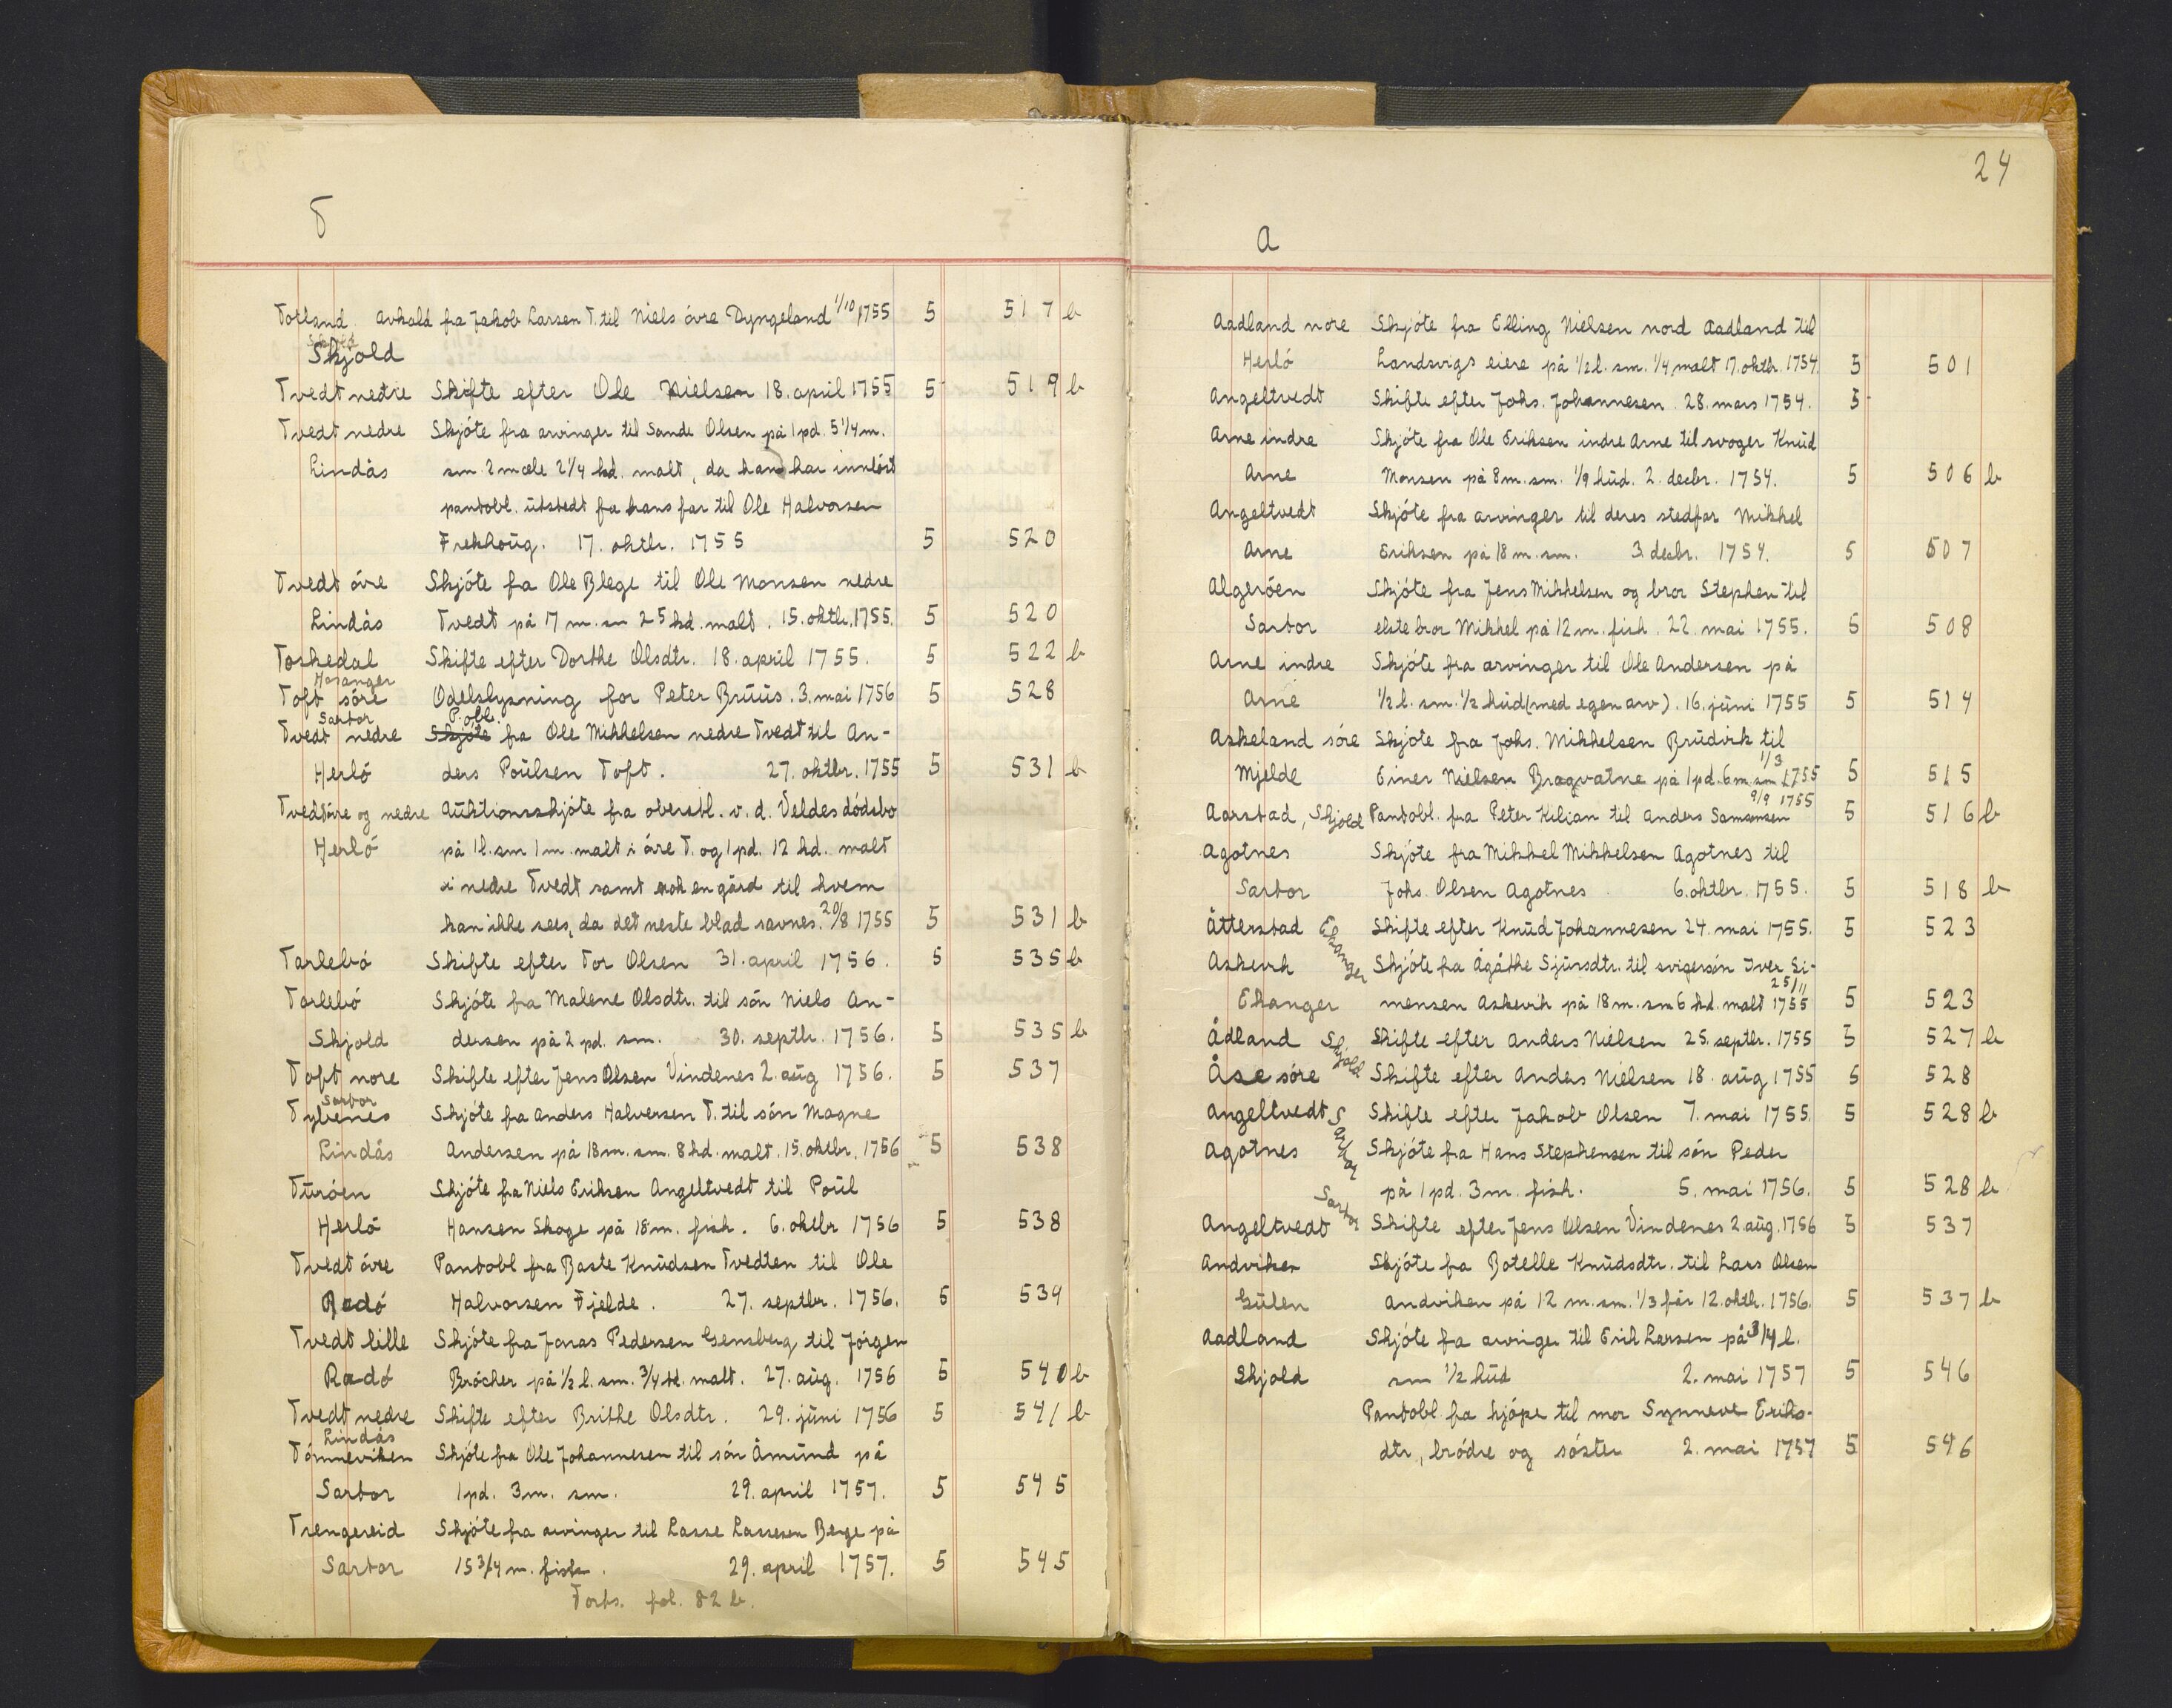 T
Totland avkald fra Jakob Larsen T. til Niels óvre Dyngeland 1/10 1755 5 517 b
Skjold
Tvedt nedre Skifte efter Ole Nielsen 18. april 1755 5 519 b
Tvedt nedre Skjóte fra arvinger til Sande Olsen på 1 pd. 5 1/4 m.
Lindås sm. 2 mæle 2 1/4 kd. malt, da han har innlóst
pantobl. utstedt fra hans far til Ole Halvorsen
Frekhoug. 17. oktbr. 1755 5 520
Tvedt óvre Skjóte fra Ole Blege til Ole Monsen nedre
Lindås Tvedt på 17 m. sm 25 kd. malt. 15. oktbr. 1755. 5 520
Toskedal Skifte efter Dorthe Olsdtr. 18. april 1755. 5 522 b
Hosanger
Toft sóre Odelslysning for Peter Bruus. 3. mai 1756 5 528
Sartor P.obl.
Tvedt nedre Skjóte fra Ole Mikkelsen nedre Tvedt til An-
Herló ders Poulsen Toft. 27. oktbr. 1755 5 531 b
Tvedt óvre og nedre Auktionsskjóte fra oberstl. v. d. Veldes dódsbo
Herló på 1 l. sm 1 m. malt i óvre T. og 1 pd. 12 kd. malt
i nedre Tvedt samt nok en gård til hvem
kan ikke sees, da det neste blad savnes. 20/8 1755 5 531 b
Tarlebó Skifte efter Tor Olsen 31. april 1756. 5 535 b
Tarlebó Skjóte fra Malene Olsdtr. til són Niels An-
Skjold dersen på 2 pd. sm. 30. septbr. 1756. 5 535 b
Toft nore Skifte efter Jens Olsen Vindenes 2. aug 1756. 5 537
Sartor
Tybenes Skjóte fra Anders Halversen T. til són Magne
Lindås Andersen på 18 m. sm. 8 kd. malt. 15. oktbr. 1756 5 538
Turóen Skjóte fra Niels Eriksen Angeltvedt til Poul
Herló Hansen Skoge på 18 m. fisk. 6. oktbr 1756 5 538
Tvedt óvre Pantobl fra Baste Knudsen Tvedten til Ole
Radó Halvorsen Fjelde. 27. septbr. 1756. 5 539
Tvedt lille Skjóte fra Jonas Pedersen Gensberg til Jörgen
Radó Brócher på 1/2 l. sm. 3/4 td. malt. 27. aug. 1756 5 540 b
Tvedt nedre Skifte efter Brithe Olsdtr. 29. juni 1756 5 541 b
Lindås
Tónneviken Skjóte fra Ole Johannesen til són Åmund på
Sartor 1 pd. 3 m. sm. 29. april 1757. 5 545
Trengereid Skjóte fra arvinger til Lasse Lassesen Berge på
Sartor 15 3/4 m. fisk. 29. april 1757. 5 545
Forts. fol. 82 b.
24
A
Aadland nore Skjóte fra Elling Nielsen nord Aadland til
Herló Landsvigs eiere på 1/2 l. sm. 1/4 malt 17. oktbr. 1754 5 501
Angeltvedt Skifte efter Johs. Johannesen. 28. mars 1754. 5
Arne indre Skjóte fra Ole Eriksen indre Arne til svoger Knud
Arne Monsen på 8 m. sm. 1/9 hud. 2. decbr. 1754. 5 506 b
Angeltvedt Skjóte fra arvinger til deres stedfar Mikkel
Arne Eriksen på 18 m. sm. 3. decbr. 1754. 5 507
Algeróen Skjóte fra Jens Mikkelsen og bror Stephen til
Sartor elste bror Mikkel på 12 m. fisk. 22. mai 1755. 5 508
Arne indre Skjóte fra arvinger til Ole Andersen på
Arne 1/2 l. sm. 1/2 hud (med egen arv). 16. juni 1755 5 514
Askeland sóre Skjóte fra Johs. Mikkelsen Brudvik til
Mjelde Einer Nielsen Bragvatne på 1 pd. 6 m. sm 1/3 1755 5 515
Aarstad, Skjold Pantobl. fra Peter Kilian til Anders Samsonsen 9/9 1755 5 516 b
Agotnes Skjóte fra Mikkel Mikkelsen Agotnes til
Sartor Johs. Olsen Agotnes 6. oktbr. 1755. 5 518 b
Åtterstad Ekanger Skifte efter Knud Johannesen 24. mai 1755. 5 523
Askevik Skjóte fra Ågåthe Sjursdtr. til svigersón Iver Si-
Ekanger mensen Askevik på 18 m. sm 6 kd. malt 25/11 1755 5 523
Ådland Skjold Skifte efter Anders Nielsen 25. septbr. 1755 5 527 b
Åse sóre Skifte efter Anders Nielsen 18. aug 1755 5 528
Angeltvedt Sartor Skifte efter Jakob Olsen 7. mai 1755. 5 528 b
Agotnes Skjóte fra Hans Stephensen til són Peder
på 1 pd. 3 m. fisk. 5. mai 1756. 5 528 b
Angeltvedt Sartor Skifte efter Jens Olsen Vindenes 2. aug. 1756 5 537
Andviken Skjóte fra Botelle Knudsdtr. til Lars Olsen
Gulen Andviken på 12 m. sm. 1/3 får 12. oktb. 1756. 5 537 b
Aadland Skjóte fra arvinger til Erik Larsen på 3/4 l.
Skjold sm 1/2 hud 2. mai 1757 5 546
Pantobl. fra kjóper til mor Synneve Eriks-
dtr, bródre og sóster 2. mai 1757 5 546